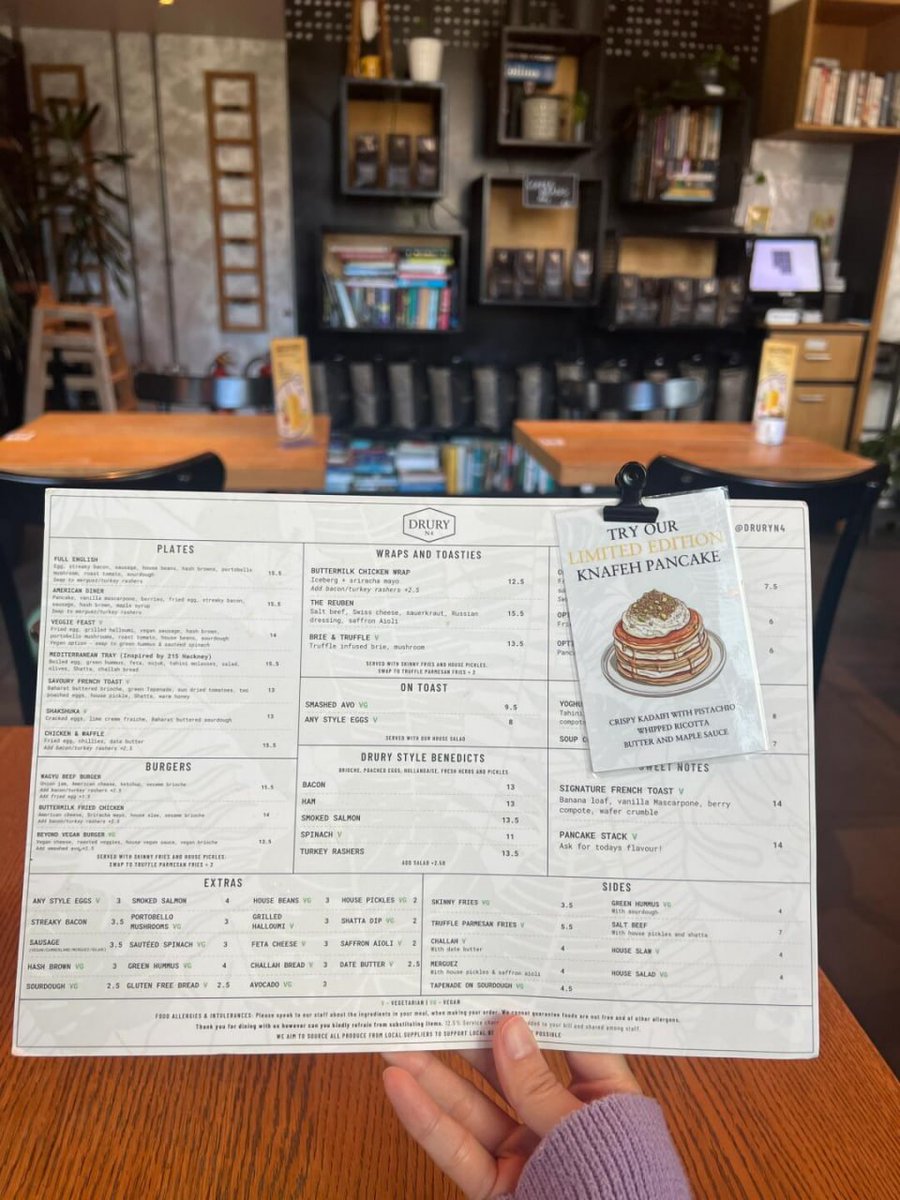 DRURY
N4
@DRURYN4
PLATES
FULL ENGLISH
Egg, streaky bacon, sausage, house beans, hash browns, portobello
mushroom, roast tomato, sourdough
Swap to merguez/turkey rashers
15.5
AMERICAN DINER
Pancake, vanilla mascarpone, berries, fried egg, streaky bacon,
sausage, hash brown, maple syrup
Swap to merguez/turkey rashers
15.5
VEGGIE FEAST V
Fried egg, grilled halloumi, vegan sausage, hash brown,
portobello mushrooms, roast tomato, house beans, sourdough
Vegan option - swap to green hummus & sautéed spinach
14
MEDITERRANEAN TRAY (Inspired by 215 Hackney)
Boiled egg, green hummus, feta, sujuk, tahini molasses, salad,
olives, Shatta, challah bread
15.5
SAVOURY FRENCH TOAST V
Baharat buttered brioche, green tapenade, sun dried tomatoes, two
poached eggs, house pickle, Shatta, warm honey
13
SHAKSHUKA V
Cracked eggs, lime creme fraiche, Baharat buttered sourdough
13
CHICKEN & WAFFLE
Fried egg, chillies, date butter
Add bacon/turkey rashers +2.5
15.5
BURGERS
WAGYU BEEF BURGER
Onion jam, American cheese, ketchup, sesame brioche
Add bacon/turkey rashers +2.5
Add fried egg
15.5
BUTTERMILK FRIED CHICKEN
American cheese, Sriracha mayo, house slaw, sesame brioche
Add bacon/turkey rashers +2.5
14
BEYOND VEGAN BURGER VG
Vegan cheese, roasted veggies, house vegan sauce, vegan brioche
Add smashed avo
13.5
SERVED WITH SKINNY FRIES AND HOUSE PICKLES.
SWAP TO TRUFFLE PARMESAN FRIES + 2
WRAPS AND TOASTIES
BUTTERMILK CHICKEN WRAP
Iceberg + sriracha mayo
Add bacon/turkey rashers +2.5
12.5
THE REUBEN
Salt beef, Swiss cheese, sauerkraut, Russian
dressing, saffron Aioli
15.5
BRIE & TRUFFLE V
Truffle infused brie, mushroom
13.5
SERVED WITH SKINNY FRIES AND HOUSE PICKLES.
SWAP TO TRUFFLE PARMESAN FRIES + 2
ON TOAST
SMASHED AVO VG 9.5
ANY STYLE EGGS V 8
SERVED WITH OUR HOUSE SALAD
DRURY STYLE BENEDICTS
BRIOCHE, POACHED EGGS, HOLLANDAISE, FRESH HERBS AND PICKLES
BACON 13
HAM 13
SMOKED SALMON 13.5
SPINACH V 11
TURKEY RASHERS 13.5
ADD SALAD +2.50
TRY OUR
LIMITED EDITION
KNAFEH PANCAKE
CRISPY KADAIFI WITH PISTACHIO
WHIPPED RICOTTA
BUTTER AND MAPLE SAUCE
7.5
6
6
8
7
SOUP
SWEET NOTES
SIGNATURE FRENCH TOAST V
Banana loaf, vanilla Mascarpone, berry
compote, wafer crumble
14
PANCAKE STACK V
Ask for todays flavour!
14
EXTRAS
ANY STYLE EGGS V 3 SMOKED SALMON 4 HOUSE BEANS VG 3 HOUSE PICKLES VG 2
STREAKY BACON 3.5 PORTOBELLO MUSHROOMS VG 3 GRILLED HALLOUMI V 3 SHATTA DIP VG 2
SAUSAGE 3.5 SAUTÉED SPINACH VG 3 FETA CHEESE V 3 SAFFRON AIOLI V 2
HASH BROWN VG 3 GREEN HUMMUS VG 4 CHALLAH BREAD V 3 DATE BUTTER V 2.5
SOURDOUGH VG 2.5 GLUTEN FREE BREAD V 2.5 AVOCADO VG 3
SIDES
SKINNY FRIES VG 3.5
TRUFFLE PARMESAN FRIES V 5.5
CHALLAH V
With date butter
4
MERGUEZ
With house pickles & saffron aioli
4
TAPENADE ON SOURDOUGH VG 4.5
GREEN HUMMUS VG
With sourdough
4
SALT BEEF
With house pickles and shatta
7
HOUSE SLAW V 4
HOUSE SALAD VG 4
V - VEGETARIAN | VG - VEGAN
FOOD ALLERGIES & INTOLERANCES: Please speak to our staff about the ingredients in your meal, when making your order. We cannot guarantee foods are not free and of other allergens.
Thank you for dining with us however can you kindly refrain from substituting items. 12.5% Service added to your bill and shared among staff.
WE AIM TO SOURCE ALL PRODUCE FROM LOCAL SUPPLIERS TO SUPPORT LOCAL POSSIBLE